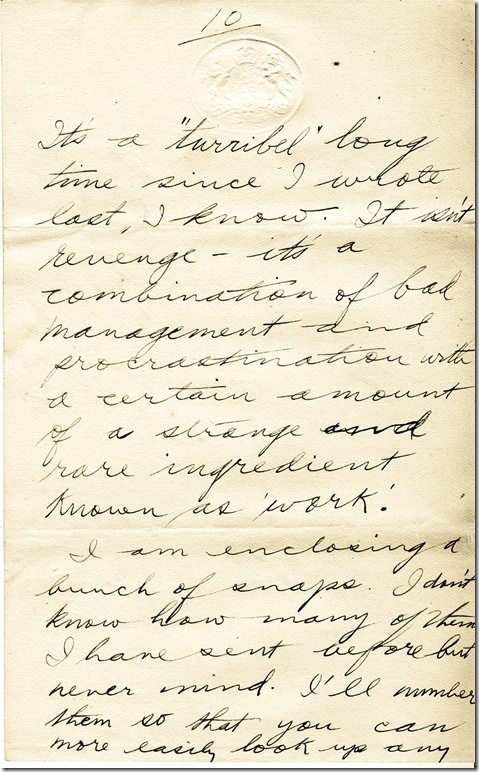 10
It's a "turribel" long
time since I wrote
last, I know. It isn't
revenge - it's a
combination of bad
management and
procrastination with
a certain amount
of a strange and
rare ingredient
known as 'work'.
I am enclosing a
bunch of snaps. I don't
know how many of them
I have sent before but
never mind. I'll number
them so that you can
more easily look up any